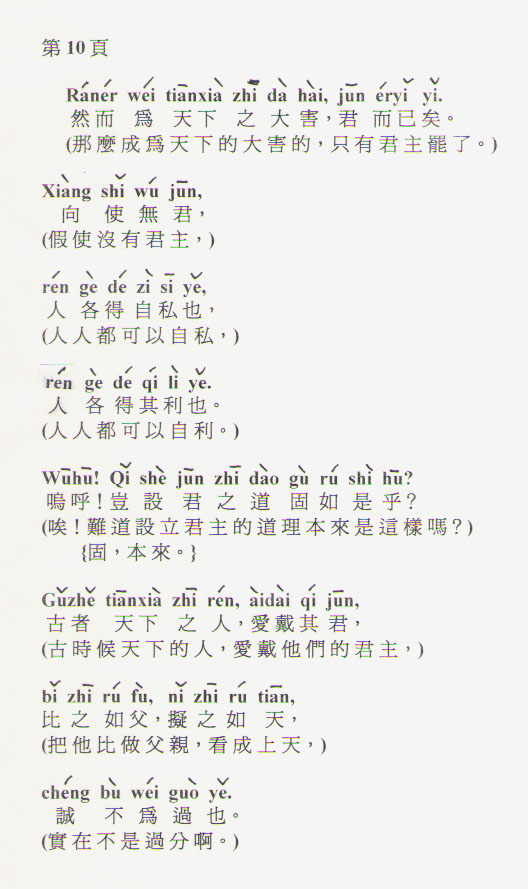 第 10 頁
Ránér wéi tiānxià zhī dà hài, jūn éryǐ yǐ.
然而 爲 天下 之 大 害，君 而已矣。
(那麼成爲天下的大害的，只有君主罷了。)
Xiàng shǐ wú jūn,
向 使 無 君，
(假使沒有君主，)
rén gè dé zì sī yě,
人 各得 自私也，
(人人都可以自私，)
rén gè dé qí lì yě.
人 各得其利也。
(人人都可以自利。)
Wūhū! Qǐ shè jūn zhī dào gù rú shì hū?
嗚呼！豈 設 君 之 道 固 如 是 乎？
(唉！難道設立君主的道理本來是這樣嗎？)
{固，本來。}
Gǔzhě tiānxià zhī rén, àidài qí jūn,
古者 天下 之 人，愛戴其君，
(古時候天下的人，愛戴他們的君主，)
bǐ zhī rú fù, nǐ zhī rú tiān,
比 之 如父，擬 之 如 天，
(把他比做父親，看成上天，)
chéng bù wéi guò yě.
誠 不 爲 過 也。
(實在不是過分啊。)